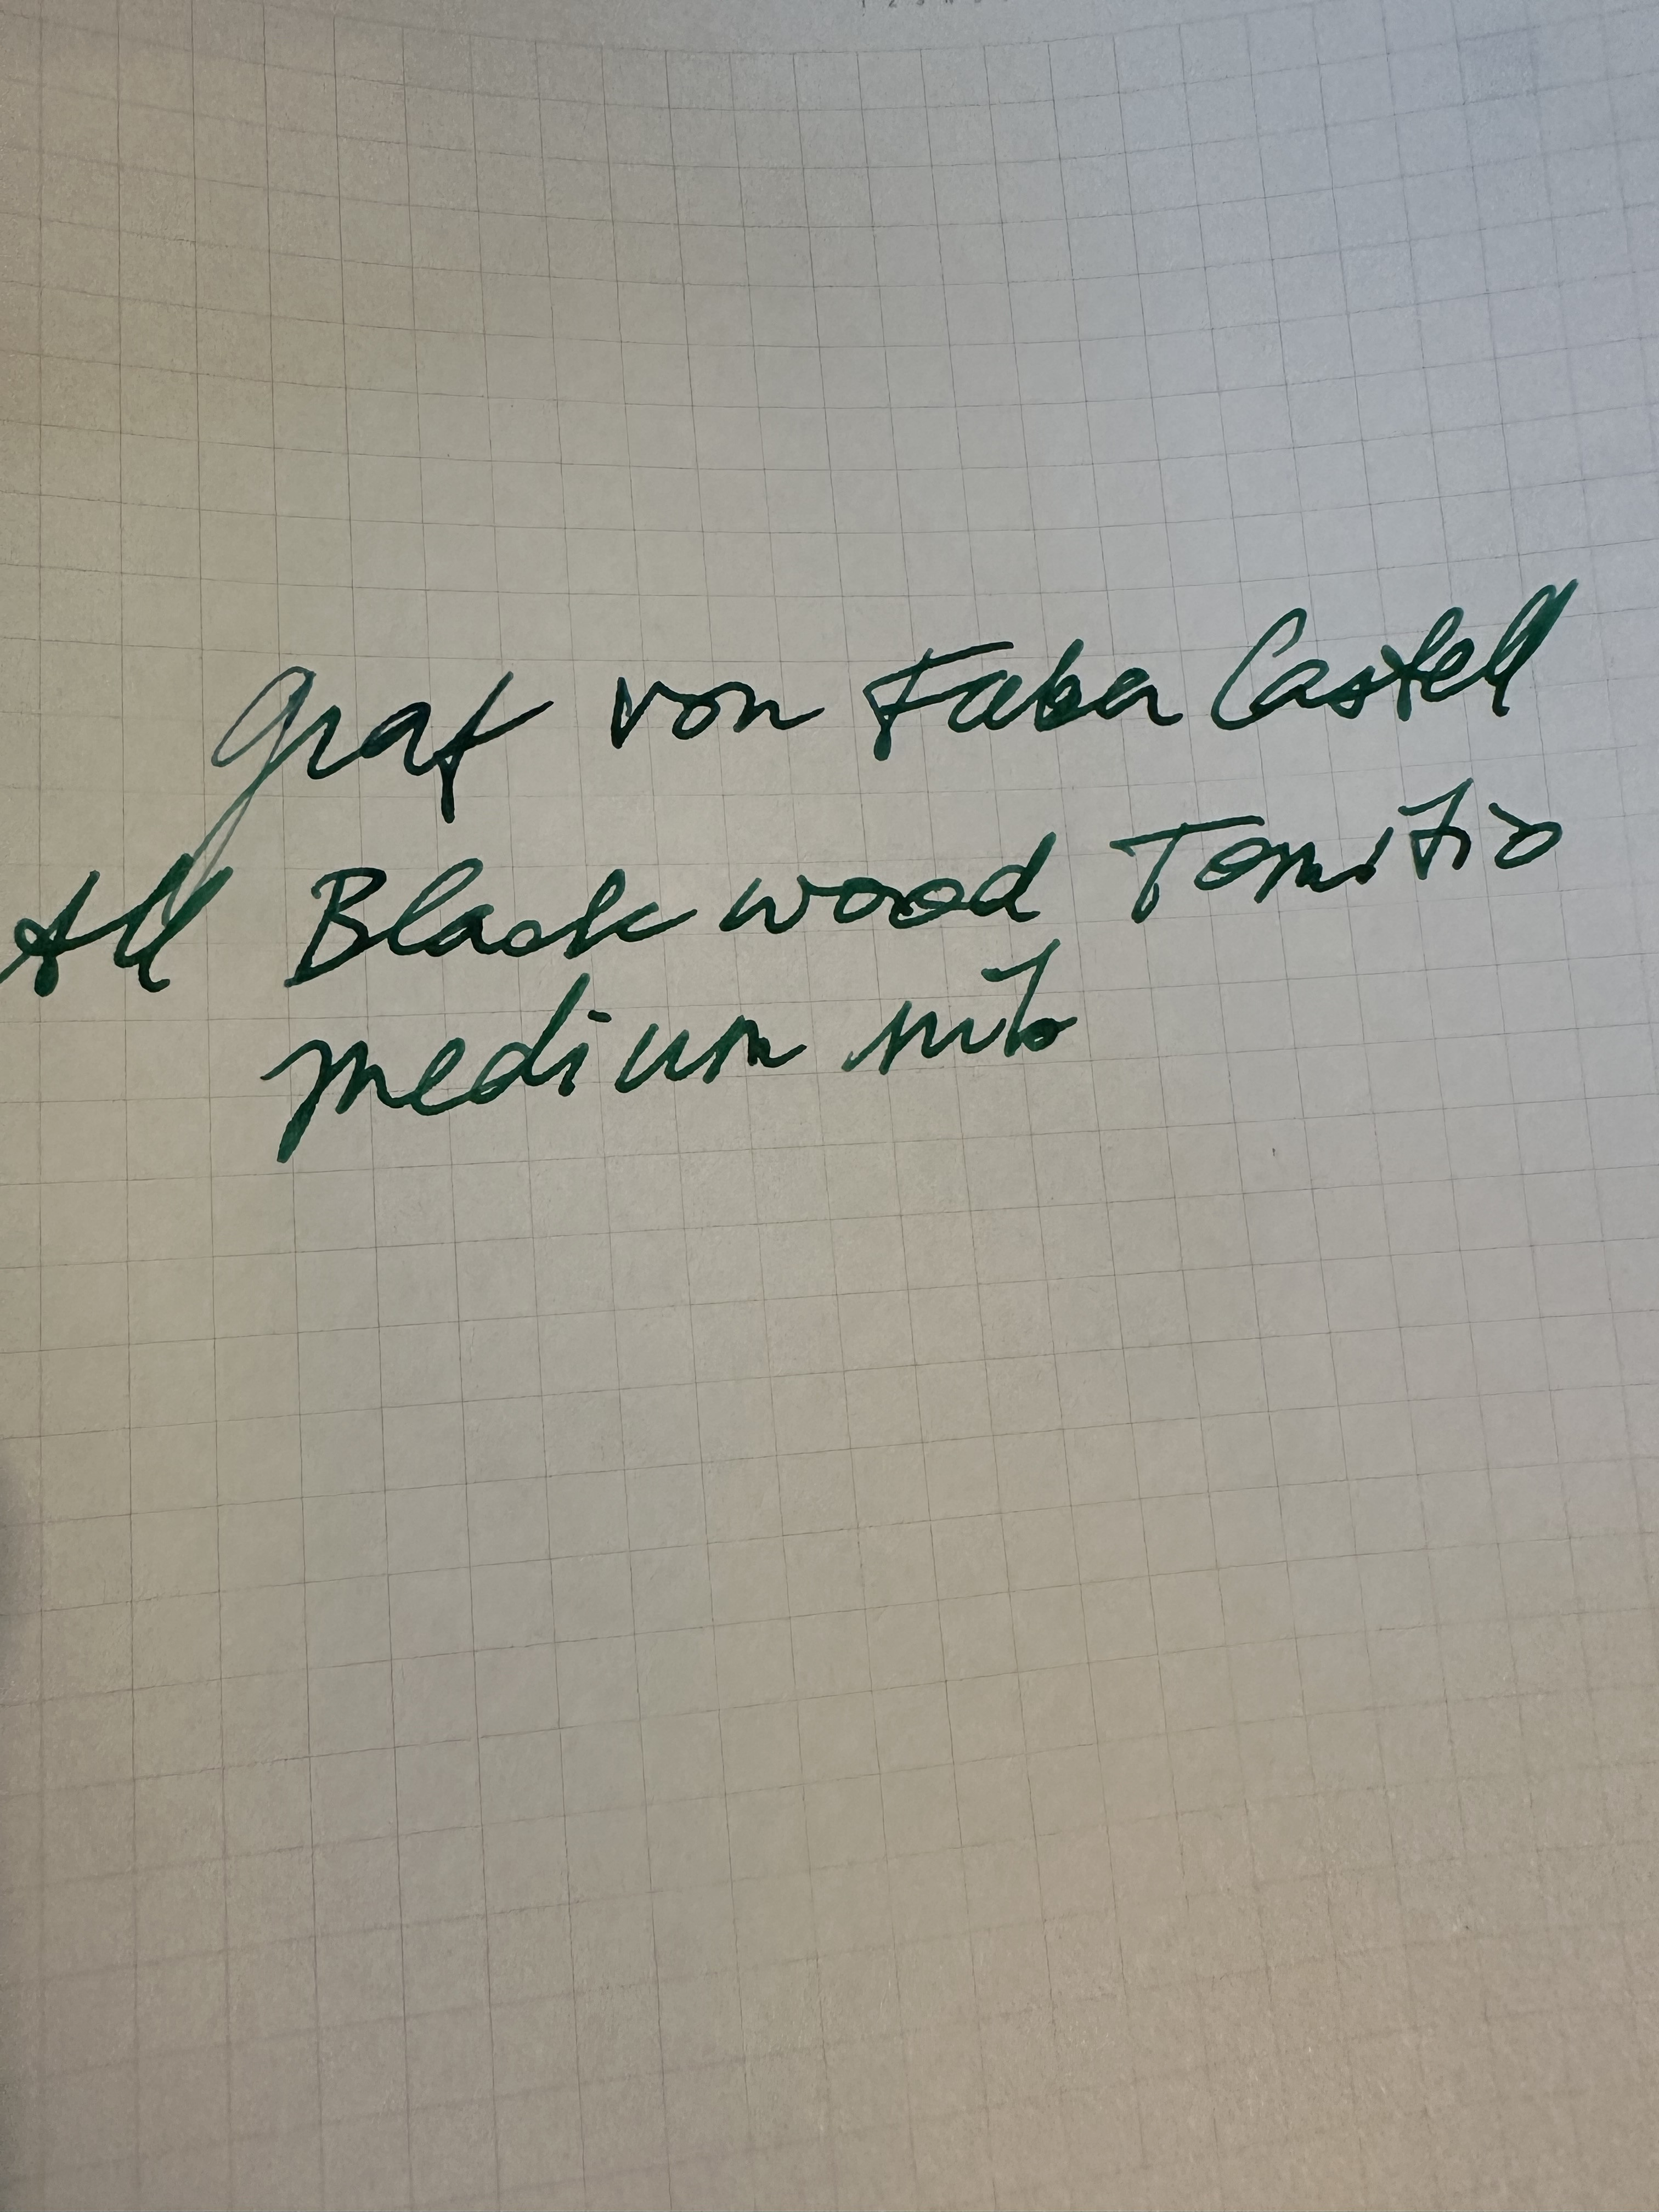 Graf von Faber Castell
All Black wood Tamitio
medium nib